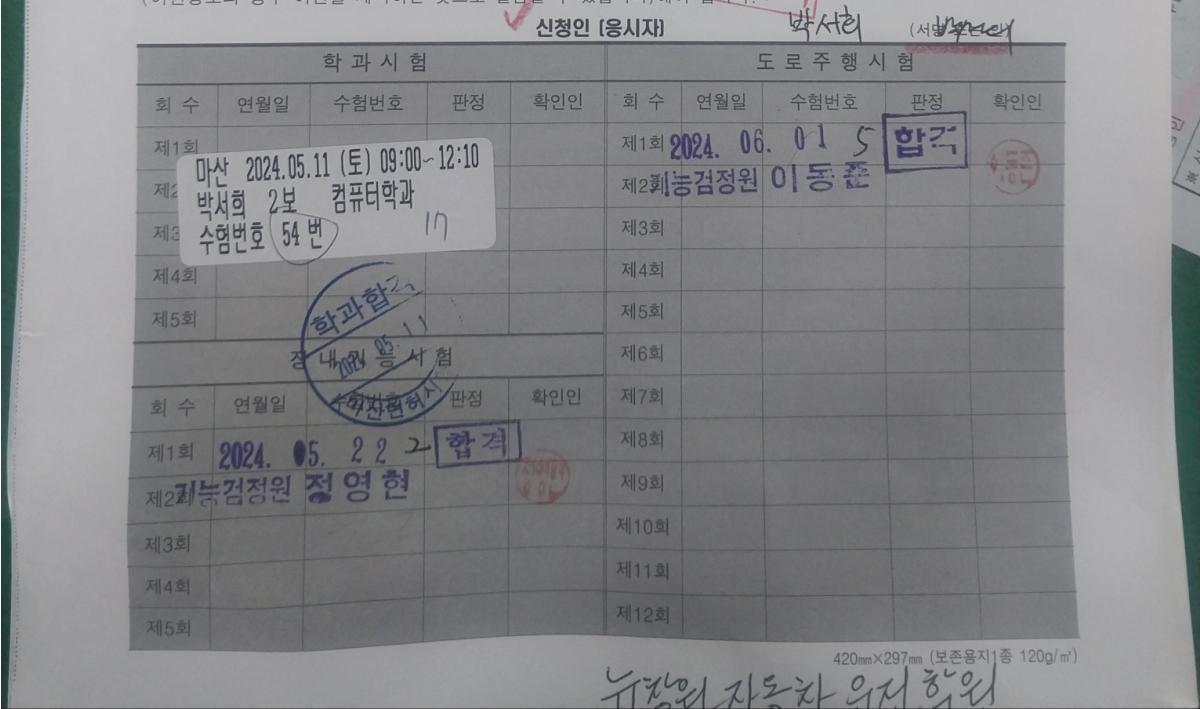 신청인 (응시자) 박서희 (서명
학과시험
회 수 연월일 수험번호 판정 확인인
제1회
마산 2024.05.11 (토) 09:00~12:10
박서희 2보 컴퓨터학과
수험번호 54번 17
제4회
제5회
학과합격
2024. 05. 11
장내기능시험
회 수 연월일 수험번호 판정 확인인
제1회 2024. 05. 22 2 합격
제2회 기능검정원 정영현
제3회
제4회
제5회
도로주행시험
회 수 연월일 수험번호 판정 확인인
제1회 2024. 06. 01 5 합격
제2회 기능검정원 이동준
제3회
제4회
제5회
제6회
제7회
제8회
제9회
제10회
제11회
제12회
420㎜×297㎜ (보존용지1종 120g/㎡)
뉴창원 자동차 운전 학원